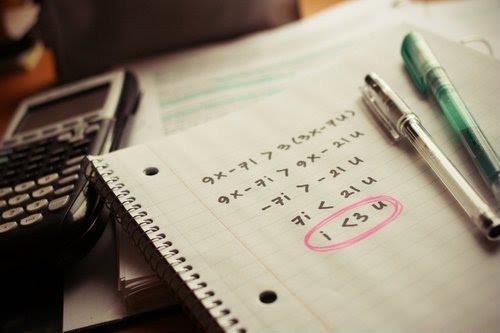 9x-7i > 3(3x-7u)
9x-7i > 9x-21u
-7i > -21u
7i < 21u
i <3 u